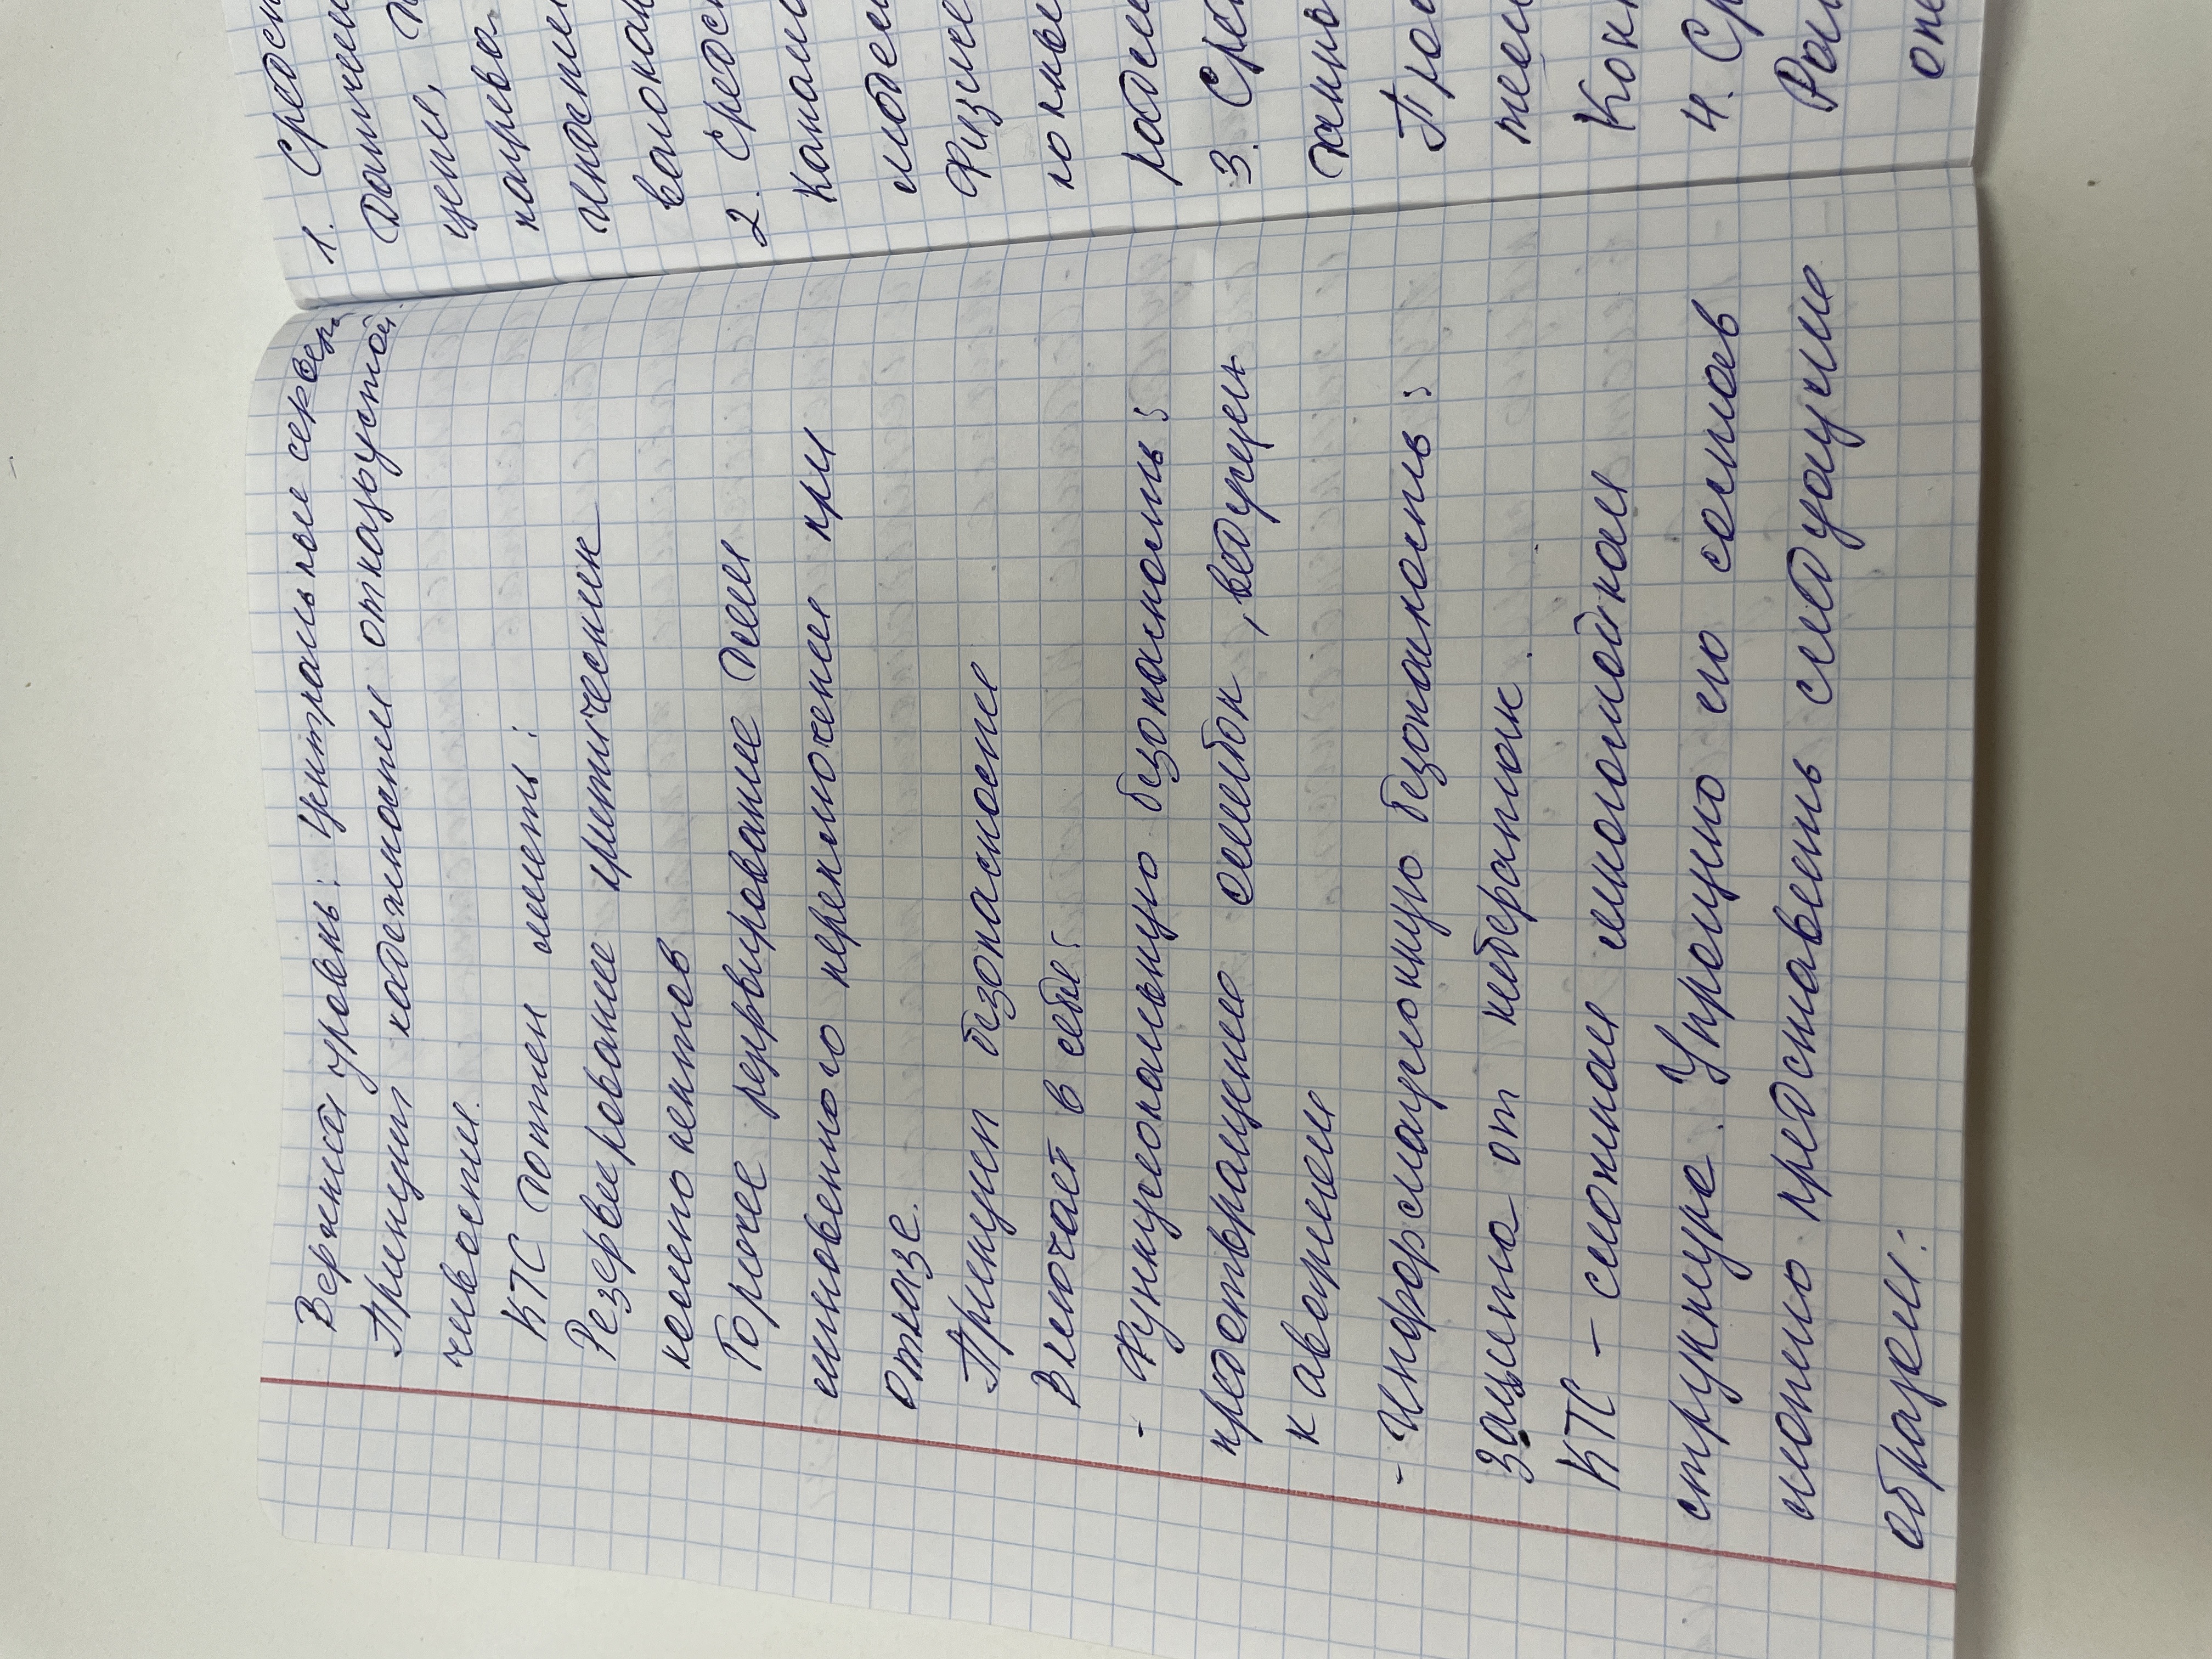 Верхний уровень: Центральные сервера
Принцип надежности отказоустой-
чивости.
КТС должен иметь:
Резервирование критических
компонентов
Горячее резервирование для
мгновенного переключения при
отказе.
Принцип безопасности
Включает в себя:
- Функциональную безопасность:
предотвращение ошибок, ведущих
к авариям
- Информационную безопасность:
Защита от кибератак.
КТС - сложная многомодная
структура. Упрощно его состав
можно представить следующим
образом:
1. Средст
Датчики
цепи,
напрев
волокон
2. Средс
Канал
модем
Физиче
радио
3. Сре
Про
Кон
4. Ср
Раб
опе